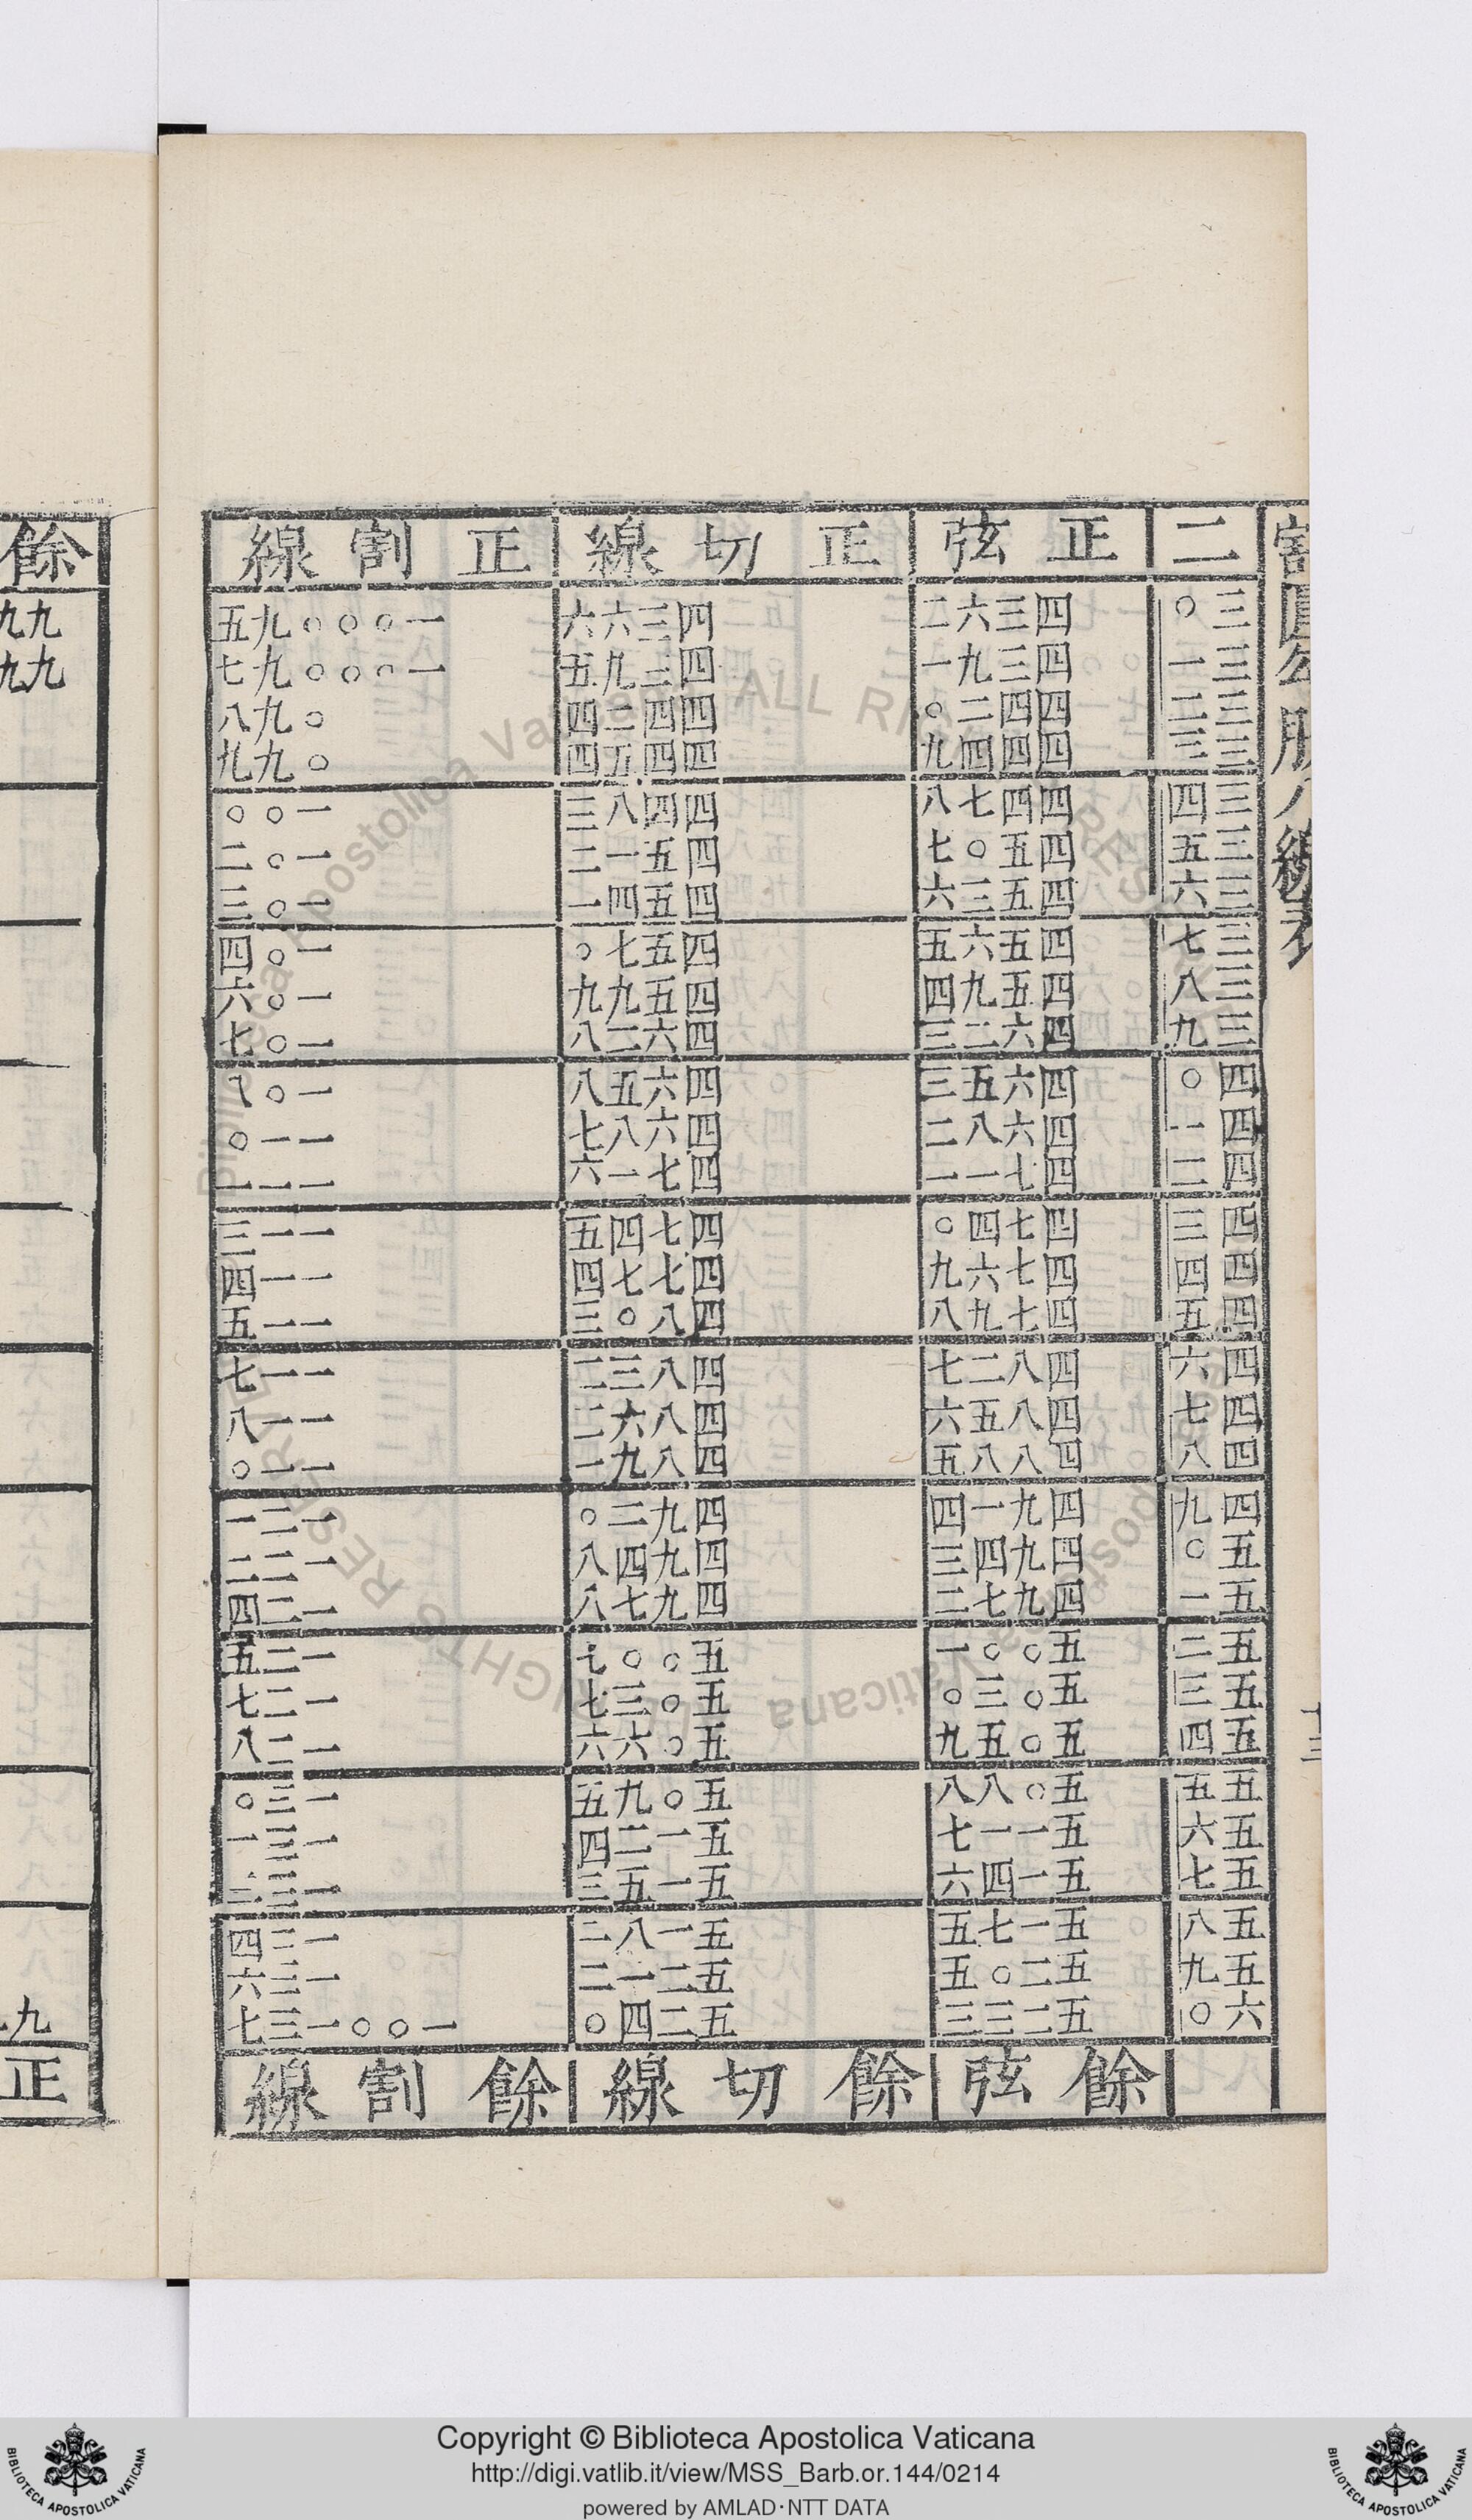 割圓勾股八線表
十三
二 正弦 正切線 正割線
三〇 四三六二 四三六六 一〇〇〇九五
三一 四三九一 四三九五 一〇〇〇九七
三二 四四二〇 四四二四 〇九八
三三 四四四九 四四五四 〇九九
三四 四四七八 四四八三 一〇〇
三五 四五〇七 四五一二 一〇二
三六 四五三六 四五四一 一〇三
三七 四五六五 四五七〇 一〇四
三八 四五九四 四五九九 一〇六
三九 四六二三 四六二八 一〇七
四〇 四六五三 四六五八 一〇八
四一 四六八二 四六八七 一一〇
四二 四七一一 四七一六 一一一
四三 四七四〇 四七四五 一一三
四四 四七六九 四七七四 一一四
四五 四七九八 四八〇三 一一五
四六 四八二七 四八三二 一一七
四七 四八五六 四八六二 一一八
四八 四八八五 四八九一 一一〇
四九 四九一四 四九二〇 一二一
五〇 四九四三 四九四八 一二二
五一 四九七二 四九七八 一二四
五二 五〇〇一 五〇〇七 一二五
五三 五〇三〇 五〇三七 一二七
五四 五〇五九 五〇六六 一二八
五五 五〇八八 五〇九五 一三〇
五六 五一一七 五一二四 一三一
五七 五一四六 五一五三 一三二
五八 五一七五 五一八二 一三四
五九 五二〇五 五二一二 一三六
六〇 五二三三 五二四〇 一〇〇一三七
餘弦 餘切線 餘割線
餘
九九
九九
九
正
Copyright © Biblioteca Apostolica Vaticana
http://digi.vatlib.it/view/MSS_Barb.or.144/0214
powered by AMLAD·NTT DATA